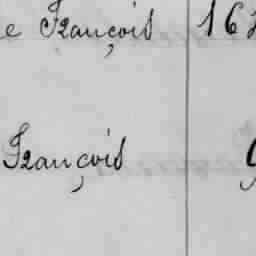 e François 162
François